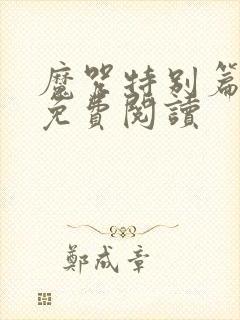 魔咒特别篇
免費閱讀
鄭成章